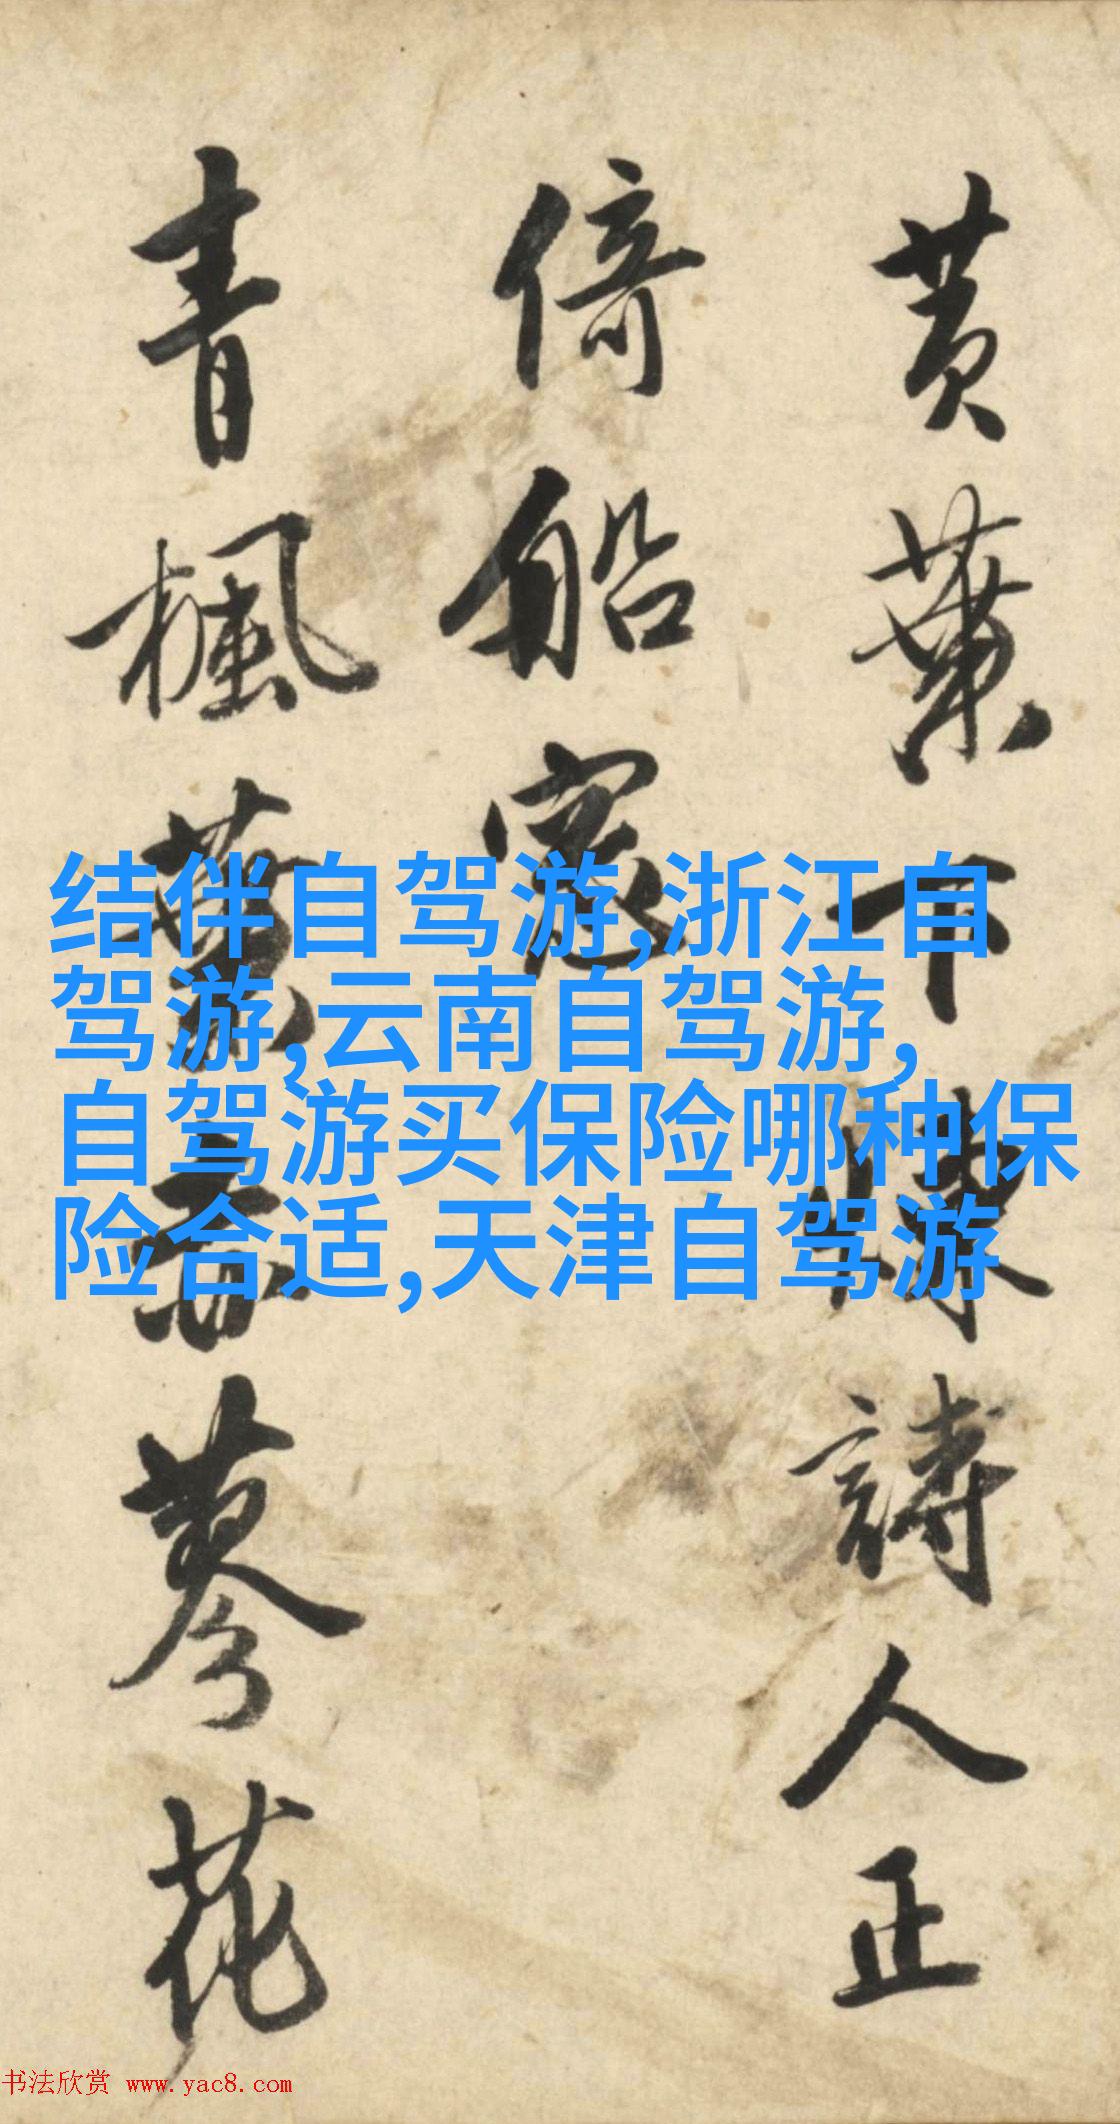 黄葉下陳詩人正
倚船窓
青楓葉赤蓼花
结伴自驾游,浙江自
驾游,云南自驾游,
自驾游买保险哪种保
险合适,天津自驾游
书法欣赏 www.yac8.com